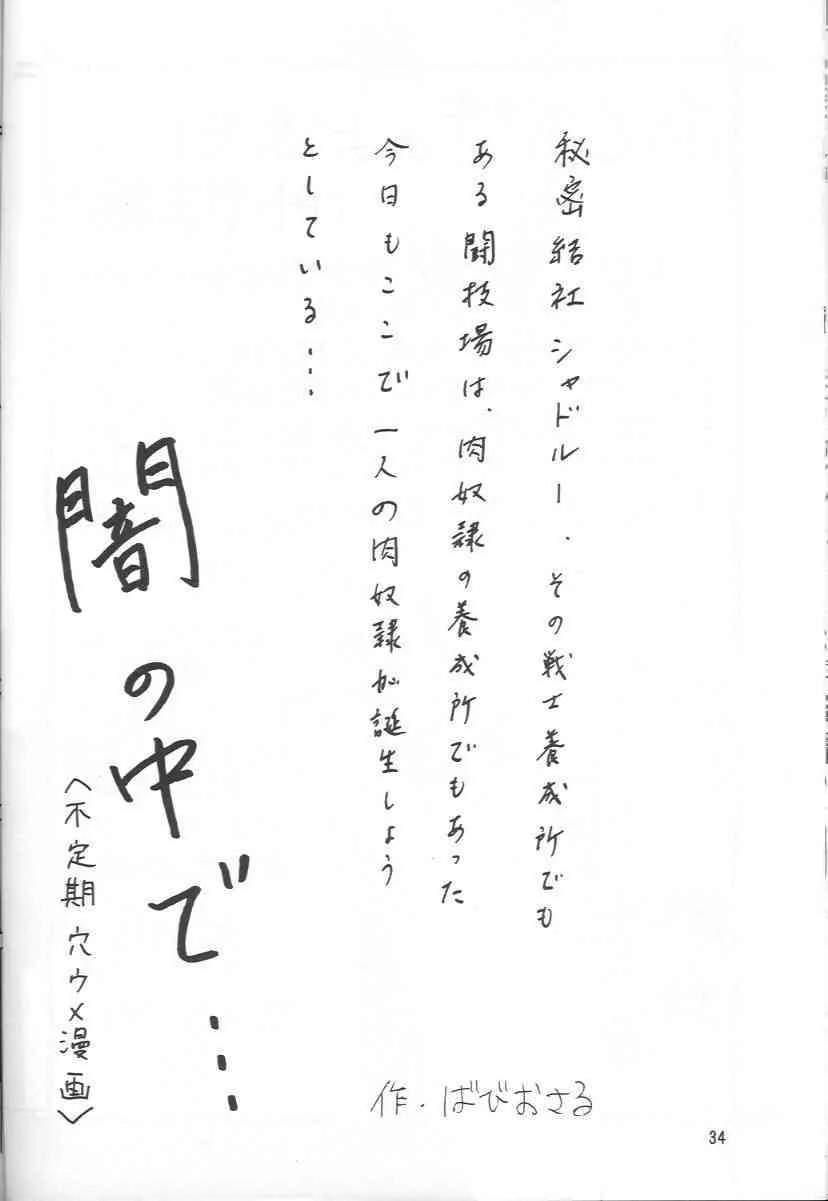 秘密結社シャドルー．その戦士養成所でも
ある闘技場は、肉奴隷の養成所でもあった
今日もここで一人の肉奴隷が誕生しよう
としている…
闇の中で…
〈不定期穴ウメ漫画〉
作・ばびおさる
34